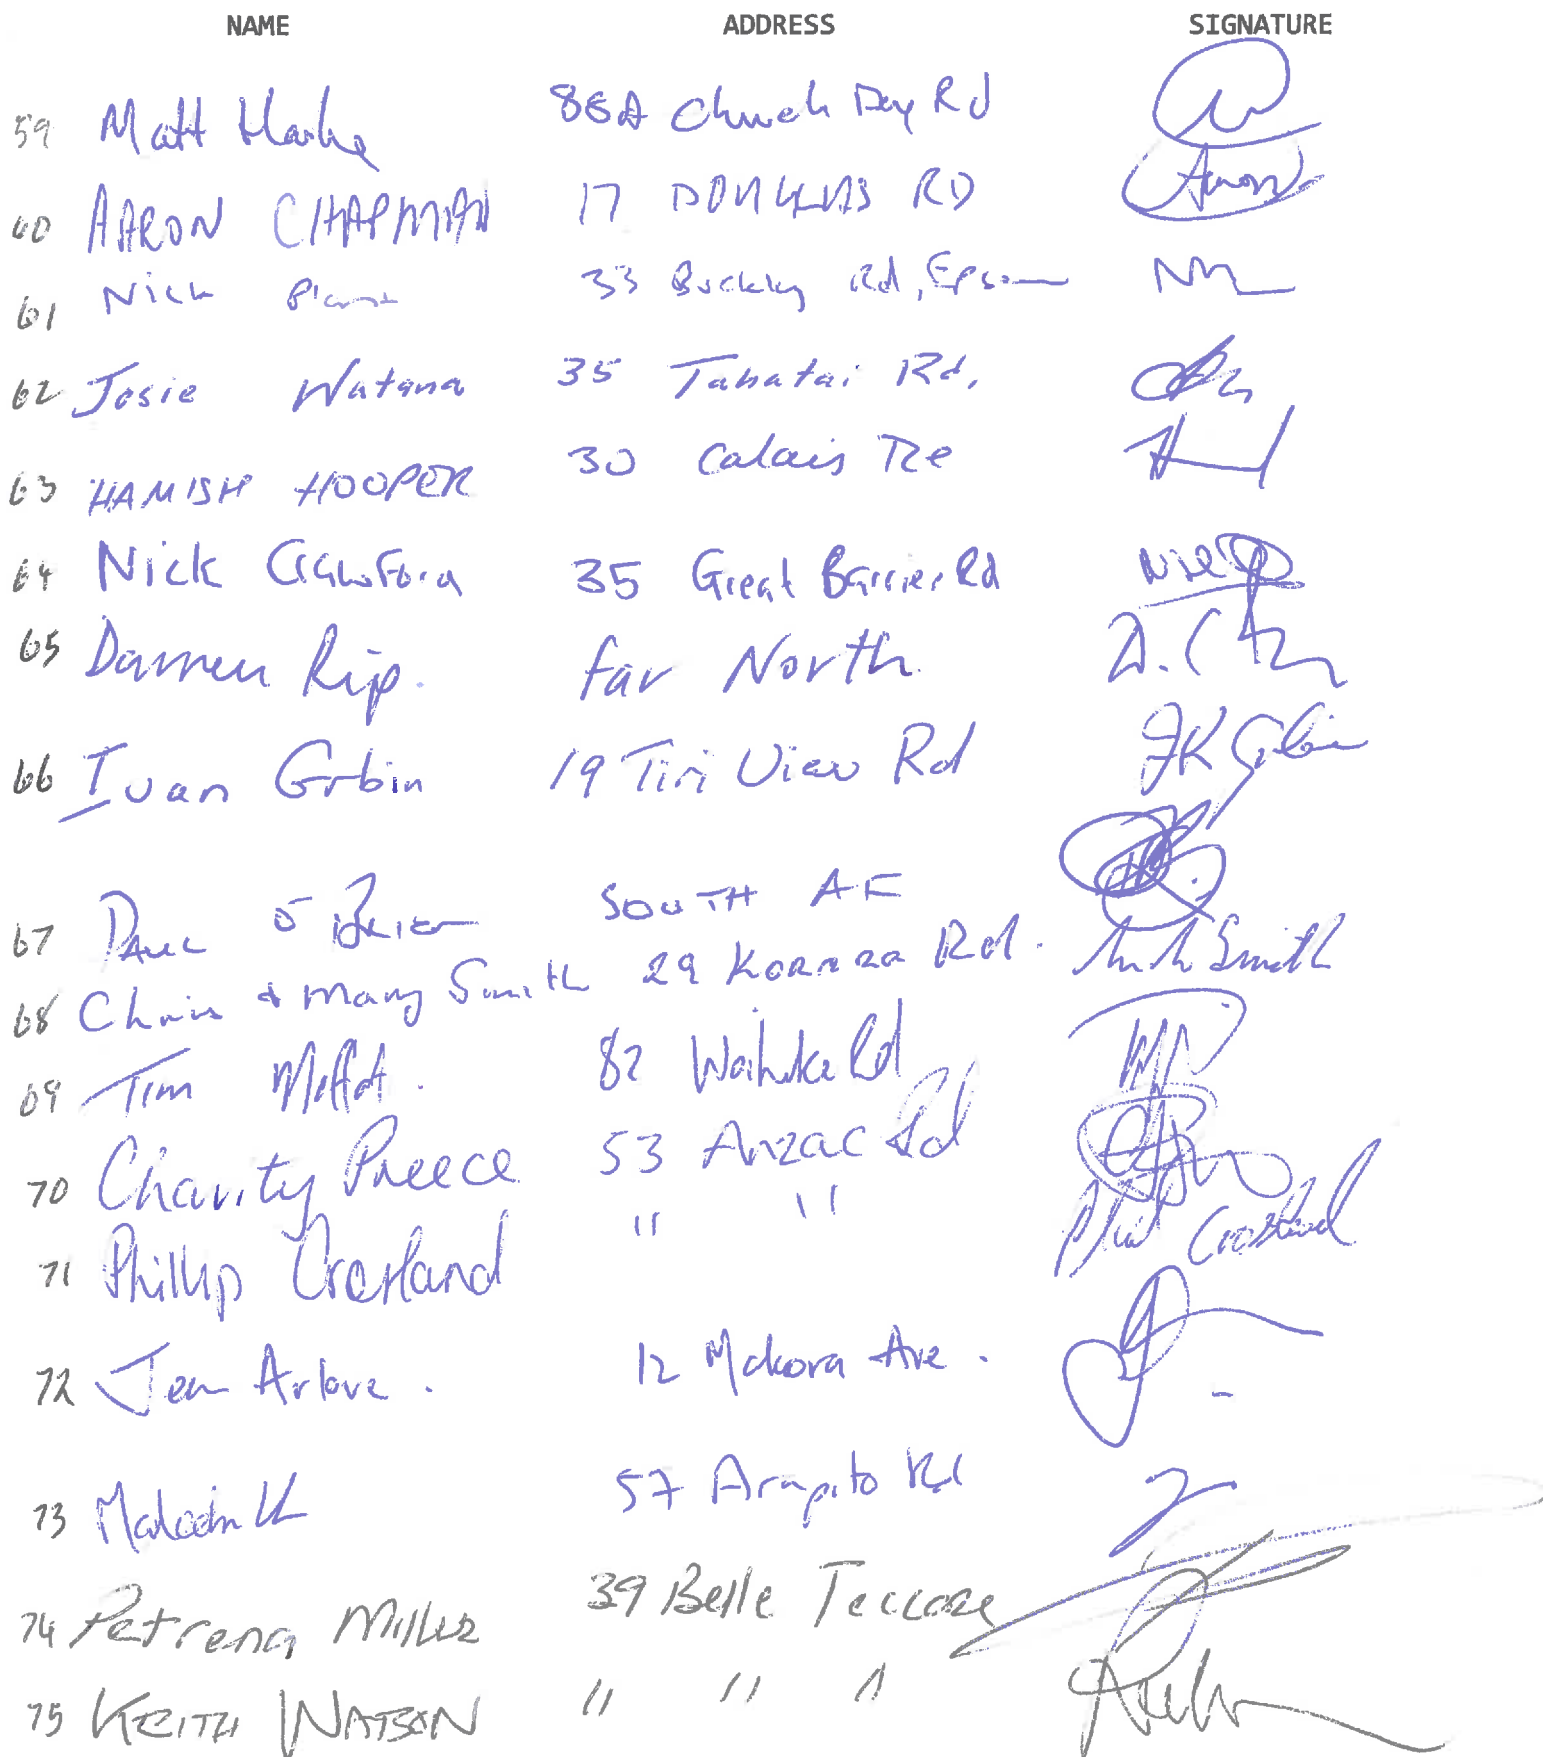 NAME ADDRESS SIGNATURE
59 Matt 86A Church Bay Rd
60 AARON CHAPMAN 17 DOUGLAS RD Aaron
61 Nick 33 Buckley Rd, Epsom
62 Josie Watana 35 Tahatai Rd,
63 HAMISH HOOPER 30 Calais Tce
64 Nick Crawford 35 Great Barrier Rd
65 Darren Rip. Far North.
66 Ivan Grbin 19 Tiri View Rd
67 PAUL O'Brien SOUTH AF
68 Chris & Mary Smith 29 Korora Rd. Smith
69 Tim Moffat. 82 Waiheke Rd
70 Charity Preece 53 Anzac Rd
71 Phillip Crosland " " Crosland
72 Jen Arlove. 12 Makora Ave.
73 Malcolm 57 Arapito Rd
74 Petrena Miller 39 Belle Terrace
75 KEITH WATSON " " "